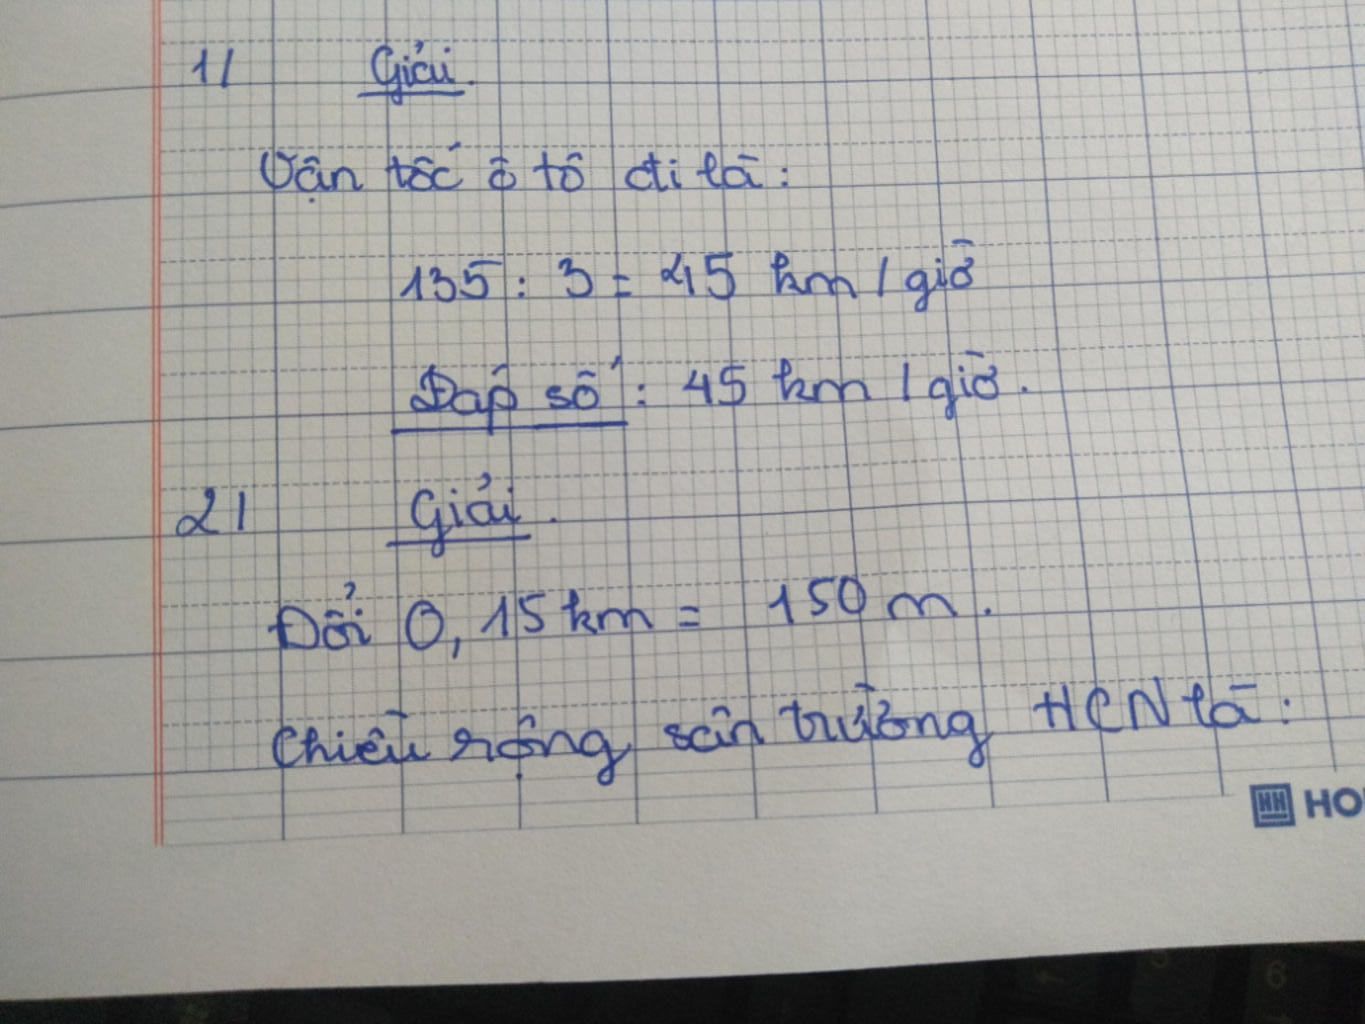 1/ Giải.
Vận tốc ô tô đi là:
135 : 3 = 45 km / giờ
Đáp số : 45 km / giờ.
2/ Giải.
Đổi 0,15 km = 150 m.
Chiều rộng sân trường HCN là:
HH HO
6